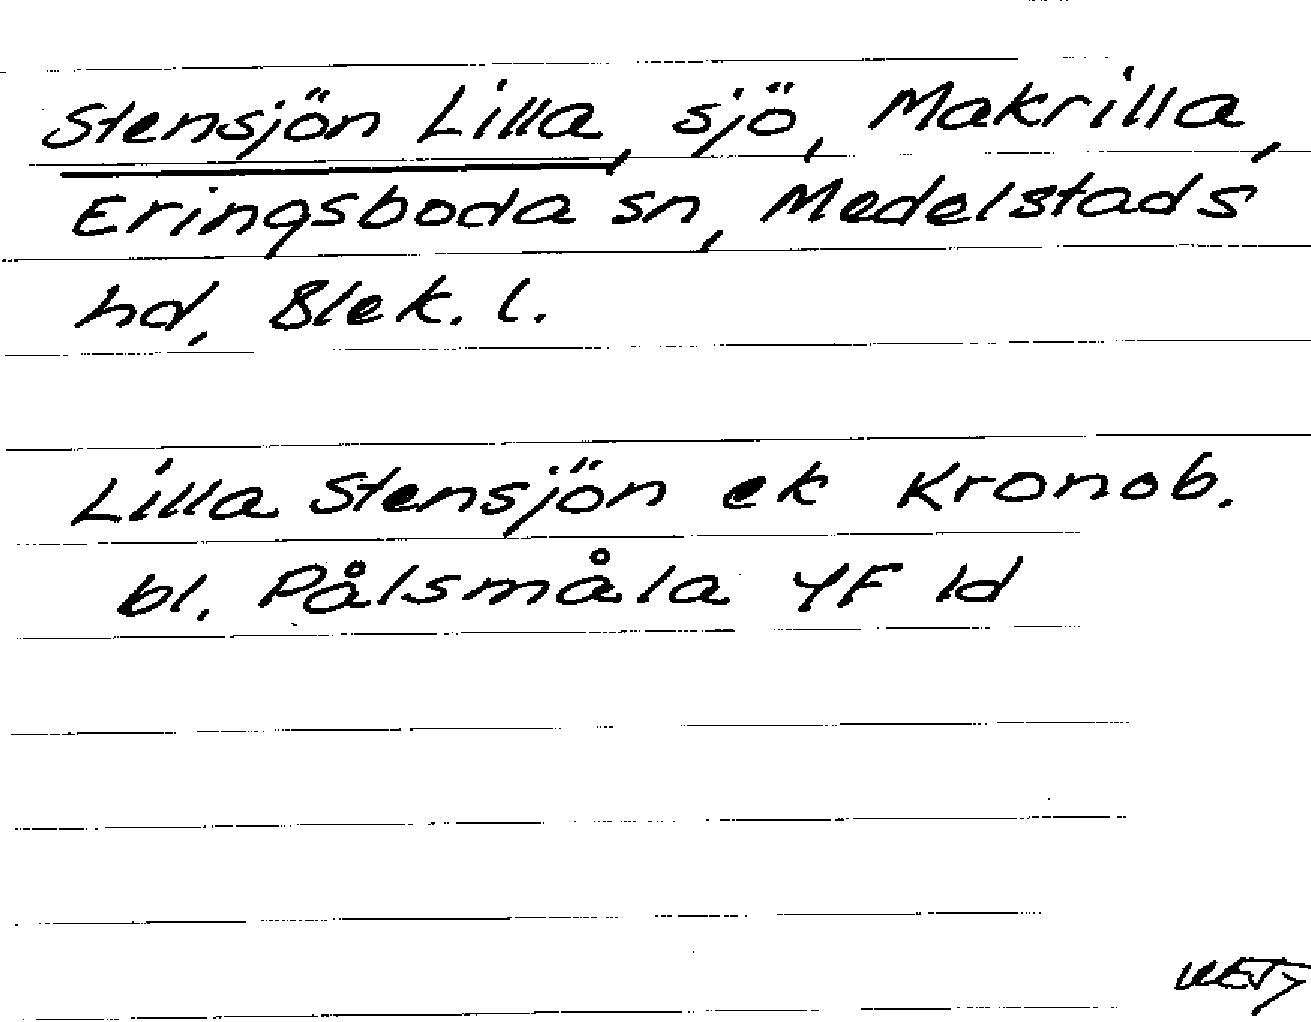 Stensjön Lilla, sjö, Makrilla,
Eringsboda sn, Medelstads
hd, Blek. l.
Lilla Stensjön ek Kronob.
bl. Pålsmåla 4F 1d